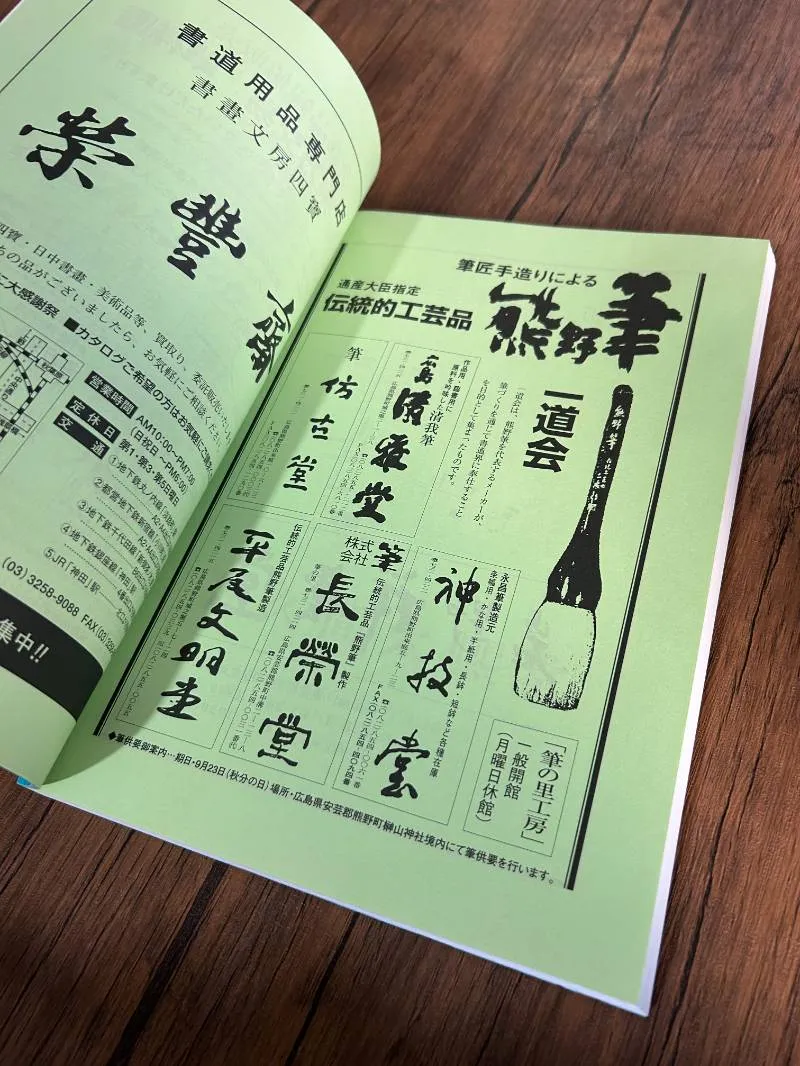 書道用品専門店
書畫文房四寶
榮豐齋
四寶・日中書畫・美術品等、買取り、委託販売
の品がございましたら、お気軽にご相談くだ
大感謝祭 ■カタログご希望の方はお気軽にご連
営業時間 AM10:00〜PM7:00
(日祝日〜PM6:00)
定休日 第1・第3・第5日曜日
交通 ①地下鉄丸ノ内線
②都営地下鉄新宿線
③地下鉄千代田線
④地下鉄銀座線「神田」駅
⑤JR「神田」駅
(03)3258-9088 FAX(03)
集中!!
筆匠手造りによる
熊野筆
通産大臣指定
伝統的工芸品
一道会
一道会は、熊野筆を代表するメーカーが、
筆づくりを通じて書道界に奉仕すること
を目的として集まったものです。
作品用・臨書用に
原料を吟味した清我筆
広島 清雅堂
筆 仿古堂
永昌筆製造元
条幅用・かな用・半紙用・長鋒・短鋒など各種在庫
神技堂
筆
株式会社
長榮堂
伝統的工芸品「熊野筆」製作
筆の里
伝統的工芸品熊野筆製造
平尾文明堂
「筆の里工房」
一般開館
(月曜日休館)
◆筆供要御案内…期日・9月23日(秋分の日)場所・広島県安芸郡熊野町榊山神社境内にて筆供要を行います。